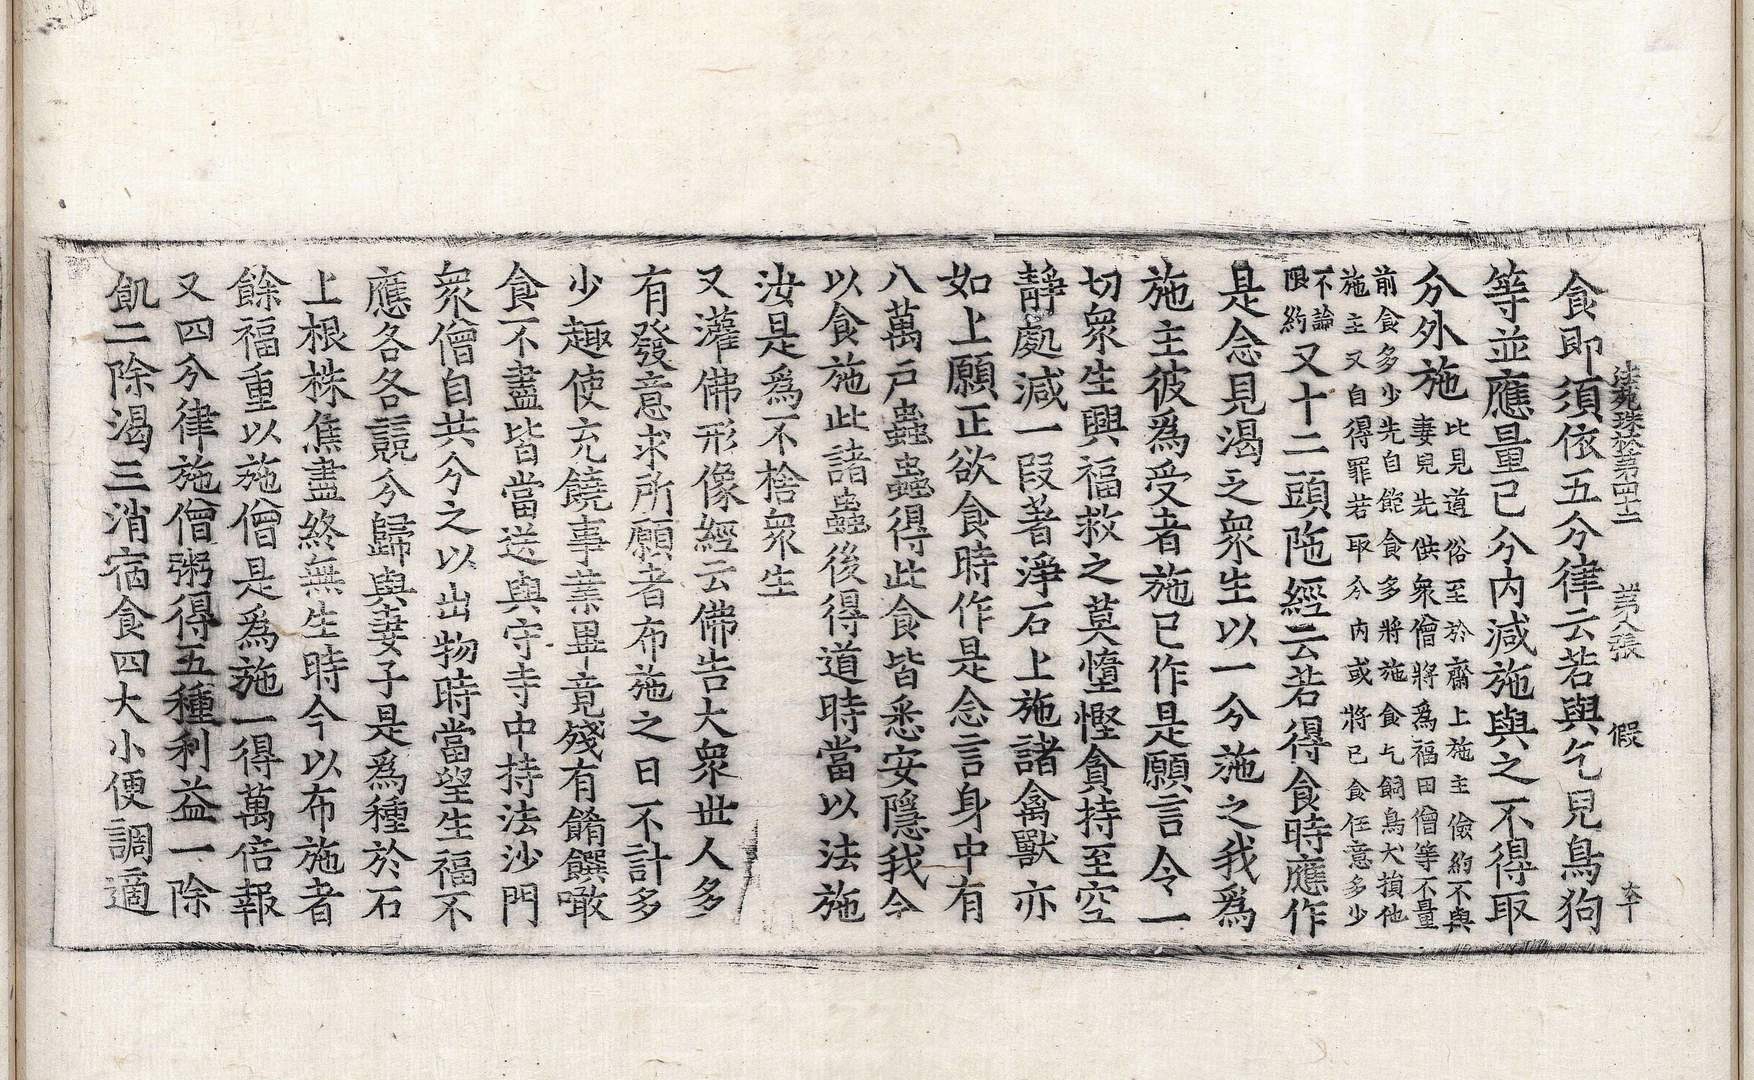 法苑珠林第四十二　第八張　假
食即須依五分律云若與乞兒鳥狗
等並應量己分内減施與之不得取
分外施此見道俗至於齋上施主儉約不與
妻兒先供衆僧將爲福田僧等不量
前食多少先自飽食多將施食乞飼鳥犬損他
施主又自得罪若取分内或將已食任意多少
不論
限約又十二頭陁經云若得食時應作
是念見渴乏衆生以一分施之我爲
施主彼爲受者施已作是願言令一
切衆生興福救之莫墮慳貪持至空
靜處減一段著淨石上施諸禽獸亦
如上願正欲食時作是念言身中有
八萬戸蟲蟲得此食皆悉安隱我今
以食施此諸蟲後得道時當以法施
汝是爲不捨衆生
又灌佛形像經云佛告大衆世人多
有發意求所願者布施之日不計多
少趣使充饒事業畢竟殘有餚饌噉
食不盡皆當送與守寺中持法沙門
衆僧自共分之以出物時當望生福不
應各各競分歸與妻子是爲種於石
上根株焦盡終無生時今以布施者
餘福重以施僧是爲施一得萬倍報
又四分律施僧粥得五種利益一除
飢二除渴三消宿食四大小便調適